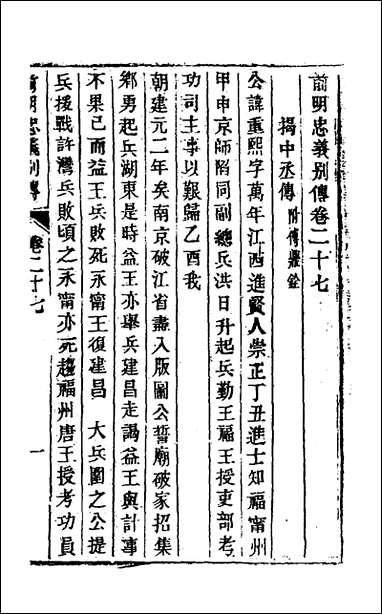 前明忠義別傳卷二十七
揭中丞傳 附傳鼎銓
公諱重熙字萬年江西進賢人崇正丁丑進士知福甯州
甲申京師陷同副總兵洪日升起兵勤王福王授吏部考
功司主事以艱歸乙酉我
朝建元二年矣南京破江省盡入版圖公誓廟破家招集
鄉勇起兵湖東是時益王亦舉兵建昌走謁益王與計事
不果已而益王兵敗死永甯王復建昌 大兵圍之公提
兵援戰許灣兵敗頃之永甯亦死趨福州唐王授考功員
前明忠義別傳 卷二十七 一